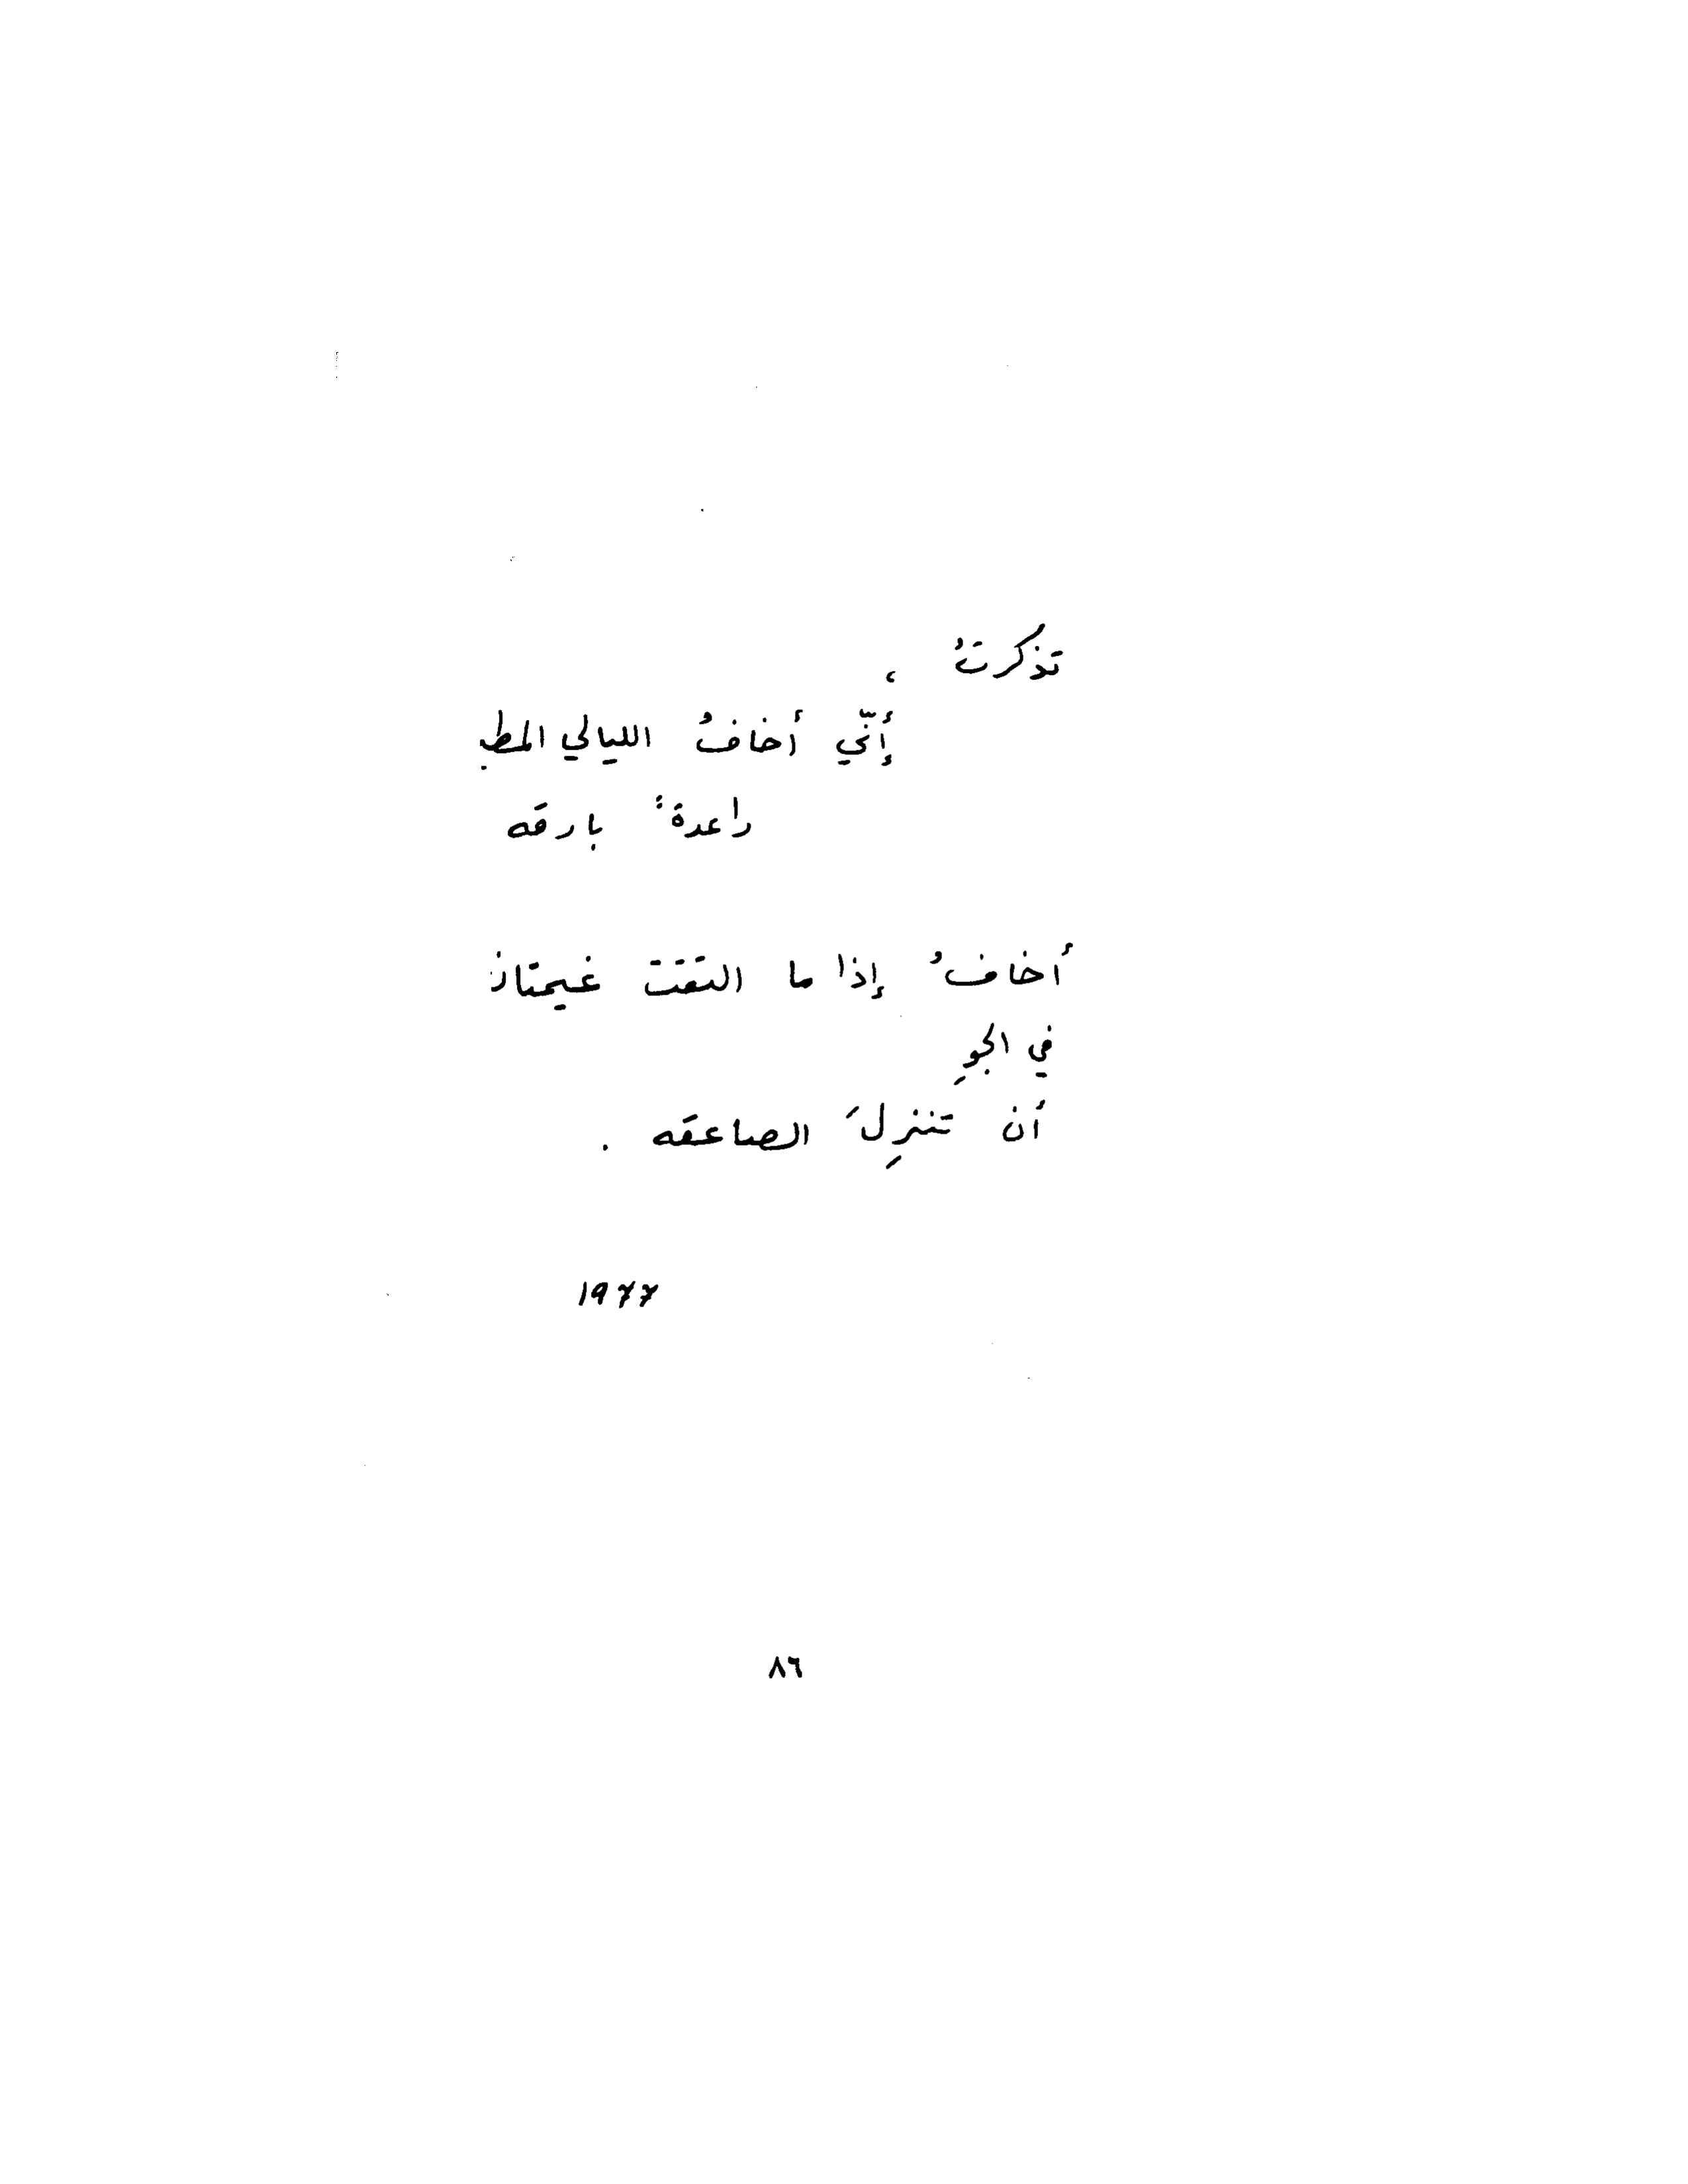 تذكرتُ ،
أنّي أخافُ الليالي
راعدةً بارقه
أخافُ إذا ما التقت غيمتان
في الجوِ
أن تنزِلَ الصاعقه .
1977
٨٦